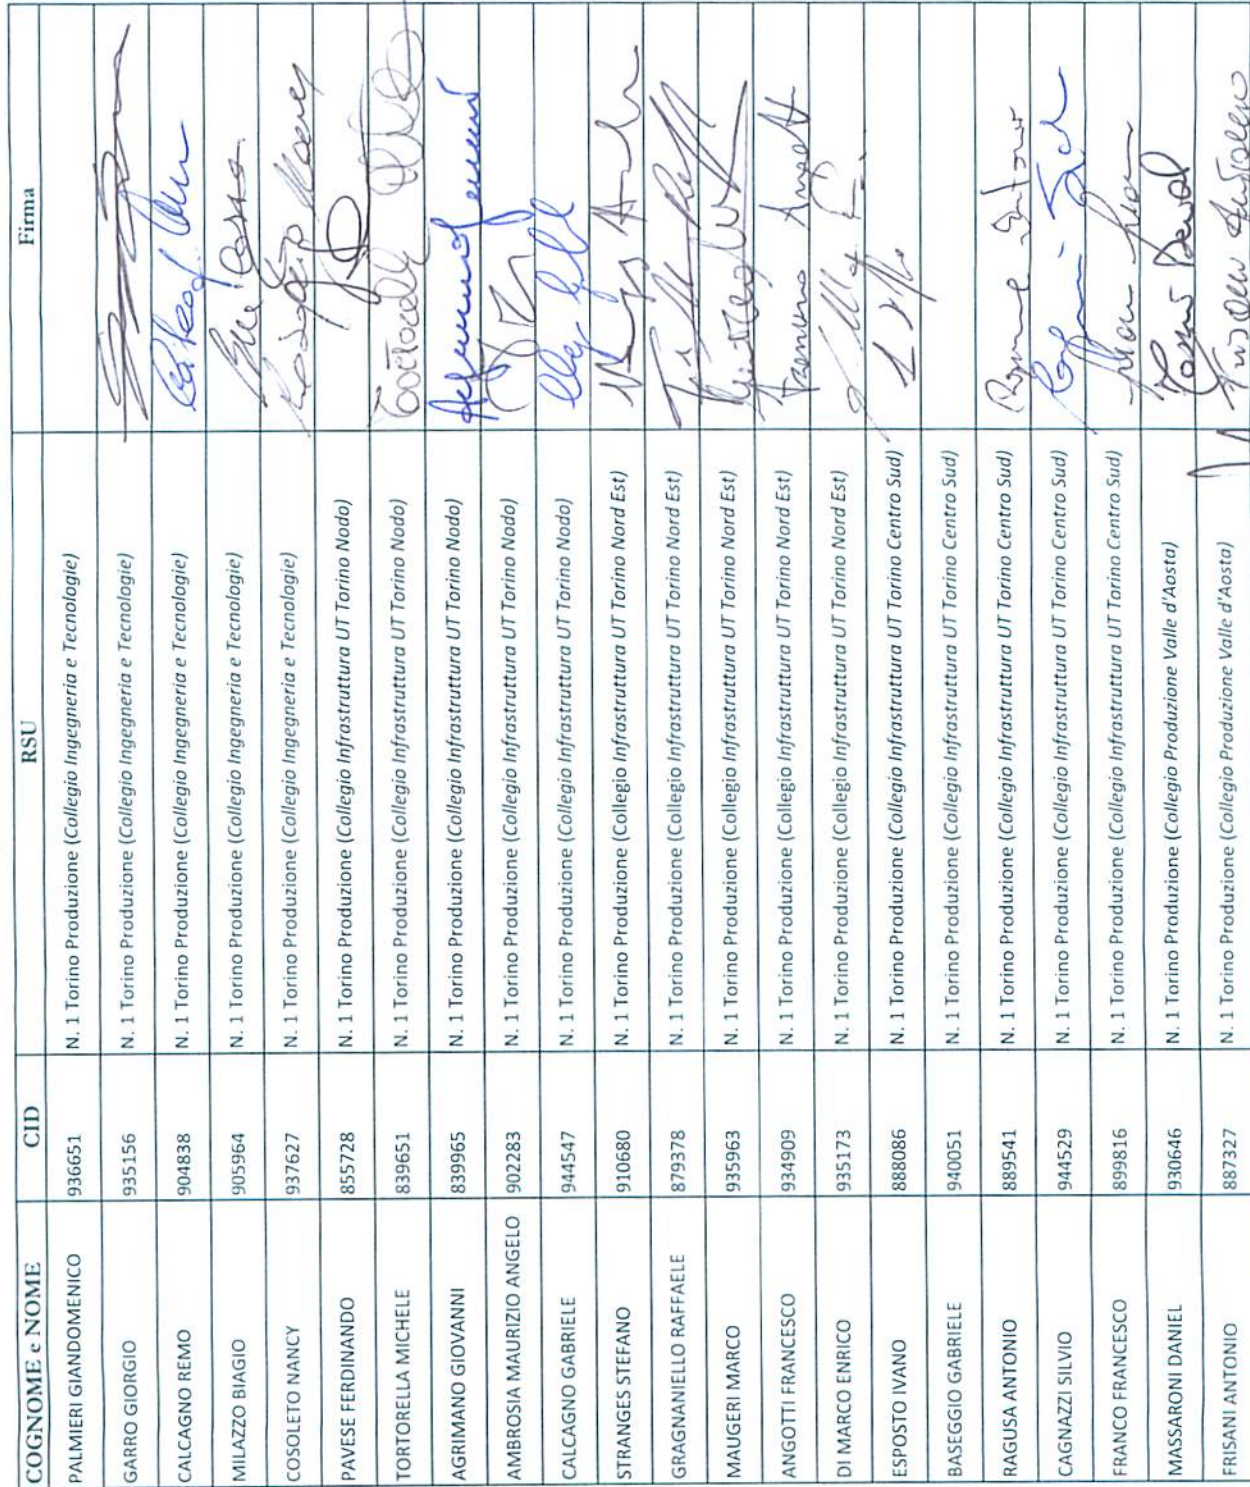 COGNOME e NOME CID RSU Firma
PALMIERI GIANDOMENICO 936651 N. 1 Torino Produzione (Collegio Ingegneria e Tecnologie)
GARRO GIORGIO 935156 N. 1 Torino Produzione (Collegio Ingegneria e Tecnologie)
CALCAGNO REMO 904838 N. 1 Torino Produzione (Collegio Ingegneria e Tecnologie)
MILAZZO BIAGIO 905964 N. 1 Torino Produzione (Collegio Ingegneria e Tecnologie)
COSOLETO NANCY 937627 N. 1 Torino Produzione (Collegio Ingegneria e Tecnologie)
PAVESE FERDINANDO 855728 N. 1 Torino Produzione (Collegio Infrastruttura UT Torino Nodo)
TORTORELLA MICHELE 839651 N. 1 Torino Produzione (Collegio Infrastruttura UT Torino Nodo)
AGRIMANO GIOVANNI 839965 N. 1 Torino Produzione (Collegio Infrastruttura UT Torino Nodo)
AMBROSIA MAURIZIO ANGELO 902283 N. 1 Torino Produzione (Collegio Infrastruttura UT Torino Nodo)
CALCAGNO GABRIELE 944547 N. 1 Torino Produzione (Collegio Infrastruttura UT Torino Nodo)
STRANGES STEFANO 910680 N. 1 Torino Produzione (Collegio Infrastruttura UT Torino Nord Est)
GRAGNANIELLO RAFFAELE 879378 N. 1 Torino Produzione (Collegio Infrastruttura UT Torino Nord Est)
MAUGERI MARCO 935963 N. 1 Torino Produzione (Collegio Infrastruttura UT Torino Nord Est)
ANGOTTI FRANCESCO 934909 N. 1 Torino Produzione (Collegio Infrastruttura UT Torino Nord Est)
DI MARCO ENRICO 935173 N. 1 Torino Produzione (Collegio Infrastruttura UT Torino Nord Est)
ESPOSTO IVANO 888086 N. 1 Torino Produzione (Collegio Infrastruttura UT Torino Centro Sud)
BASEGGIO GABRIELE 940051 N. 1 Torino Produzione (Collegio Infrastruttura UT Torino Centro Sud)
RAGUSA ANTONIO 889541 N. 1 Torino Produzione (Collegio Infrastruttura UT Torino Centro Sud)
CAGNAZZI SILVIO 944529 N. 1 Torino Produzione (Collegio Infrastruttura UT Torino Centro Sud)
FRANCO FRANCESCO 899816 N. 1 Torino Produzione (Collegio Infrastruttura UT Torino Centro Sud)
MASSARONI DANIEL 930646 N. 1 Torino Produzione (Collegio Produzione Valle d'Aosta)
FRISANI ANTONIO 887327 N. 1 Torino Produzione (Collegio Produzione Valle d'Aosta)